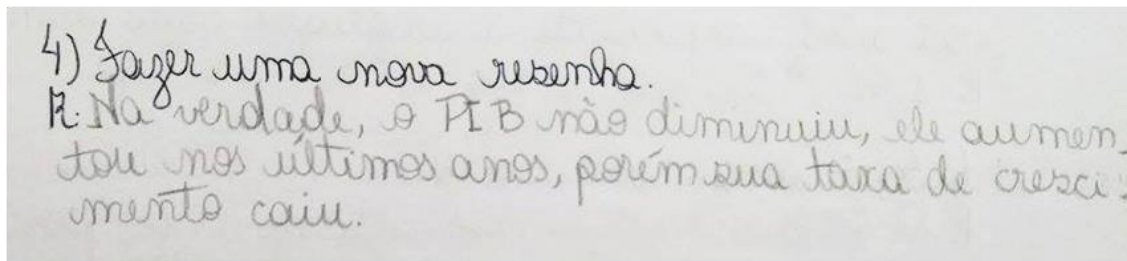 4) Fazer uma nova resenha.
R: Na verdade, o PIB não diminuiu, ele aumen_
tou nos últimos anos, porém sua taxa de cresci_
mento caiu.